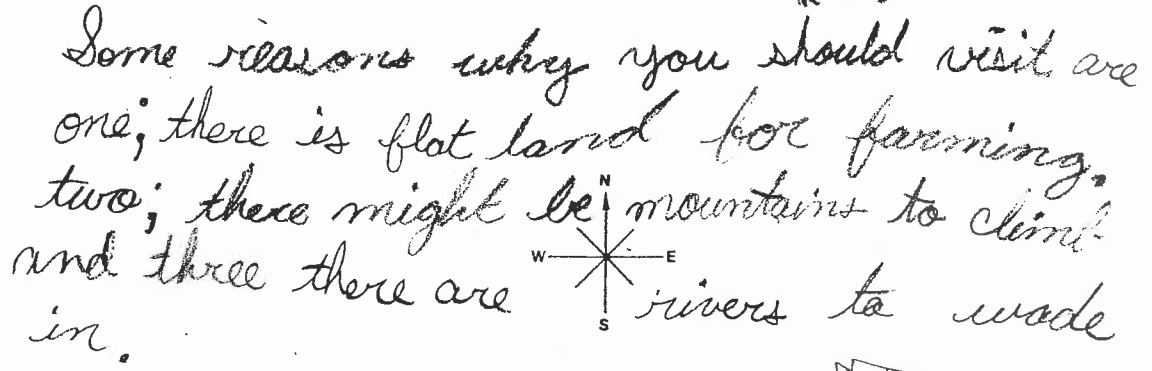 Some reasons why you should visit are
one; there is flat land for farming.
two; there might be mountains to climb
and three there are rivers to wade
in.
N
W E
S